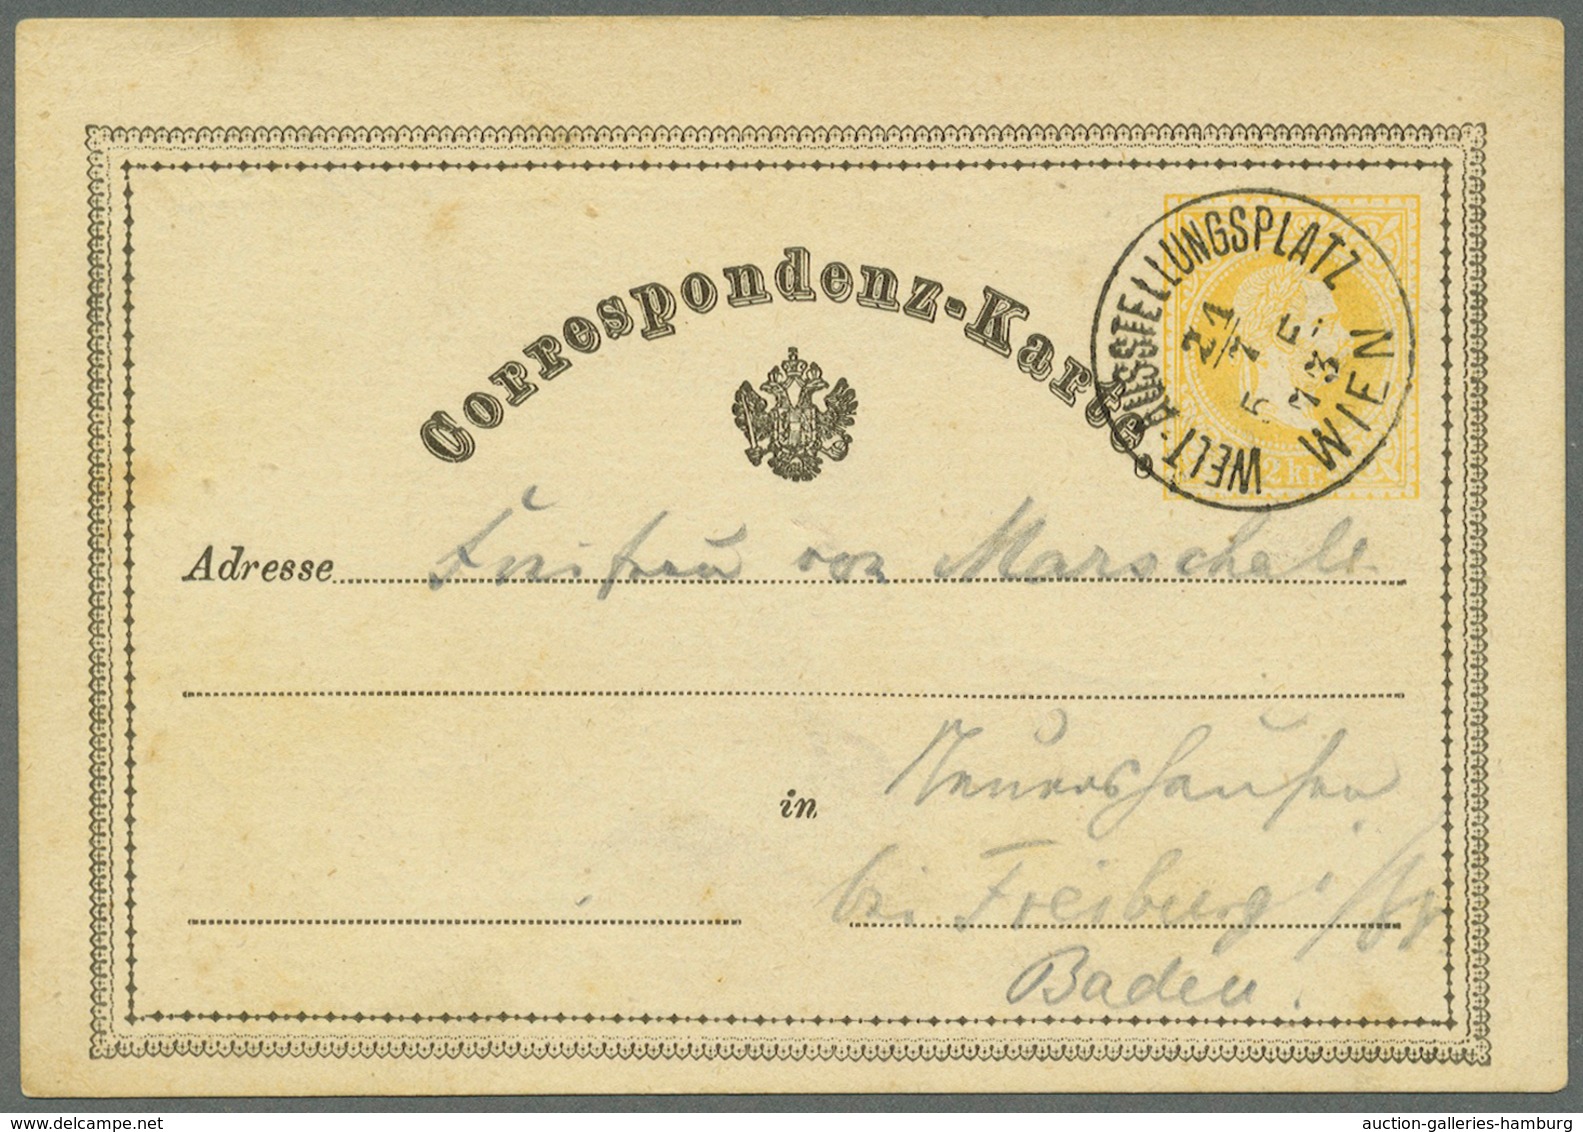 Correspondenz-Karte.
WELT-AUSSTELLUNGSPLATZ
21/7
5 E.
73
WIEN
2 kr.
Adresse Freifrau von Marschall
in Neuershausen
bei Freiburg i/Bg
Baden.
delcampe.net
auction-galleries-hamburg